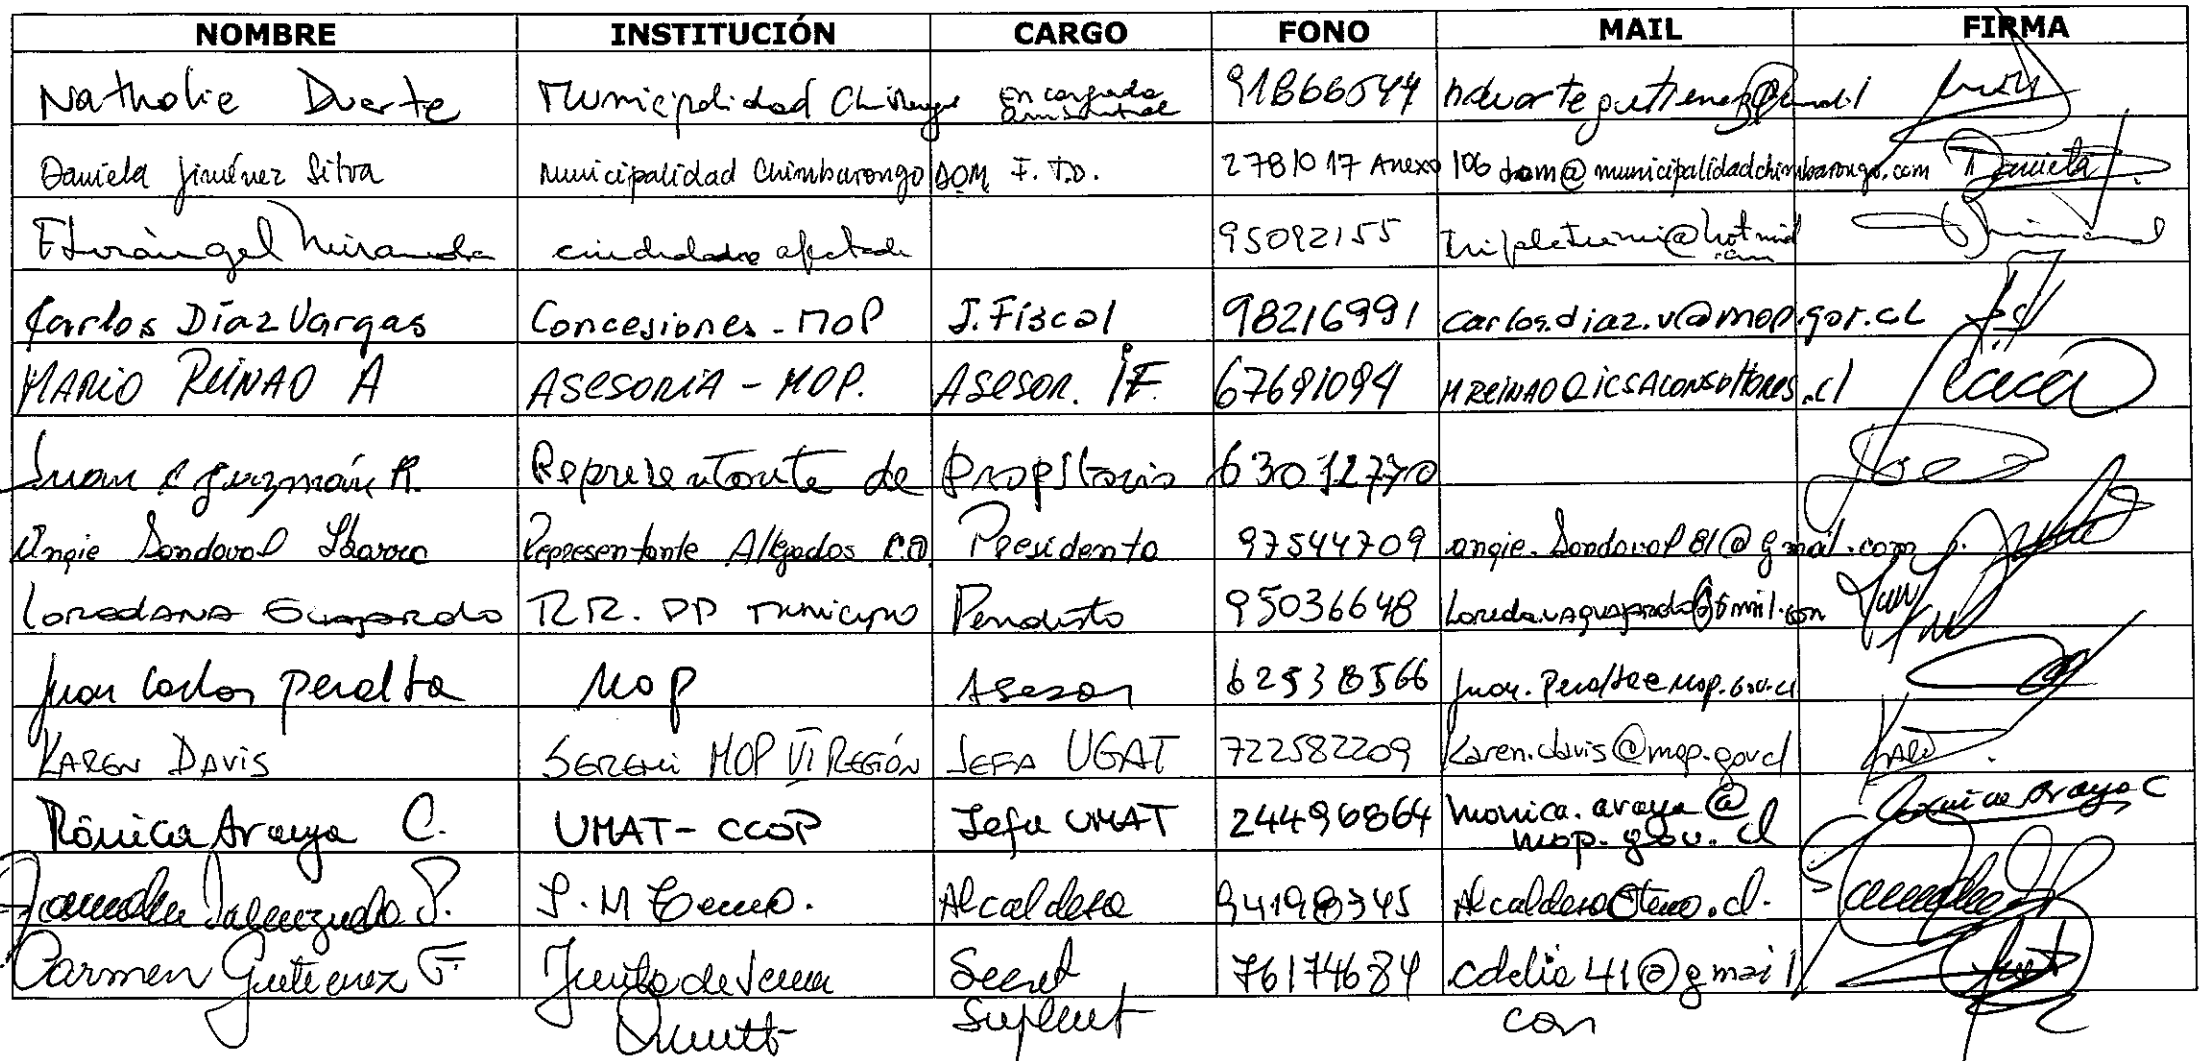 NOMBRE INSTITUCIÓN CARGO FONO MAIL FIRMA
Nathalie Duarte Municipalidad Encargada 91866544
Daniela Jiménez Silva Municipalidad Chimbarongo DOM F.T.D. 2781017 Anexo 106 dom@municipalidadchimbarongo.com Daniela
Miranda ciudadano afectado 95092155
Carlos Díaz Vargas Concesiones - MOP J. Fiscal 98216991 carlos.diaz.v@mop.gov.cl
MARIO REINAO A ASESORIA - MOP. ASESOR. IF. 67691094 MREINAO@ICSACONSULTORES.cl
Juan C Guzmán R. Representante de Propietario 63012770
Angie Sandoval Ibarra Representante Allegados Presidenta 97544709 angie.Sandoval81@gmail.com
Loredana Guajardo RR. PP Municipio Periodista 95036648
Juan Carlos Peralta MOP Asesor 62538566 Juan.Peralta@mop.gov.cl
KAREN DAVIS SEREMI MOP VI REGIÓN JEFA UGAT 722582209 Karen.davis@mop.gov.cl
Mónica Araya C. UMAT - CCOP Jefa UMAT 24496864 monica.araya@ Mónica Araya C
mop.gov.cl
Valenzuela P. I. M Teno. Alcaldesa 94198345 Alcaldesa@teno.cl.
Carmen Gutierrez F. Junta de Secret 76174684 cdelia41@gmail
Suplent com